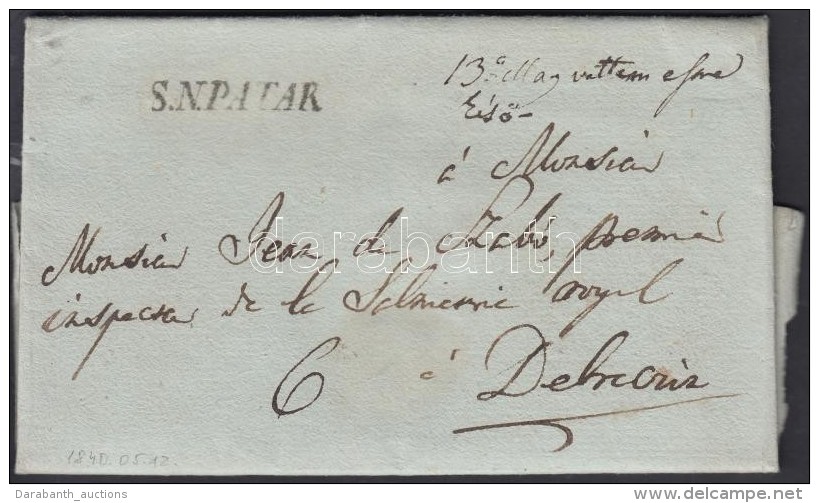 S.N.PATAR
13a May vettem
Első
à Monsieur
Monsieur Jean de Szabó, premier
inspecteur de la Salniterie royal
6 à Debreczin
1840. 05. 12.
darabanth
Darabanth_auctions
delcampe.net